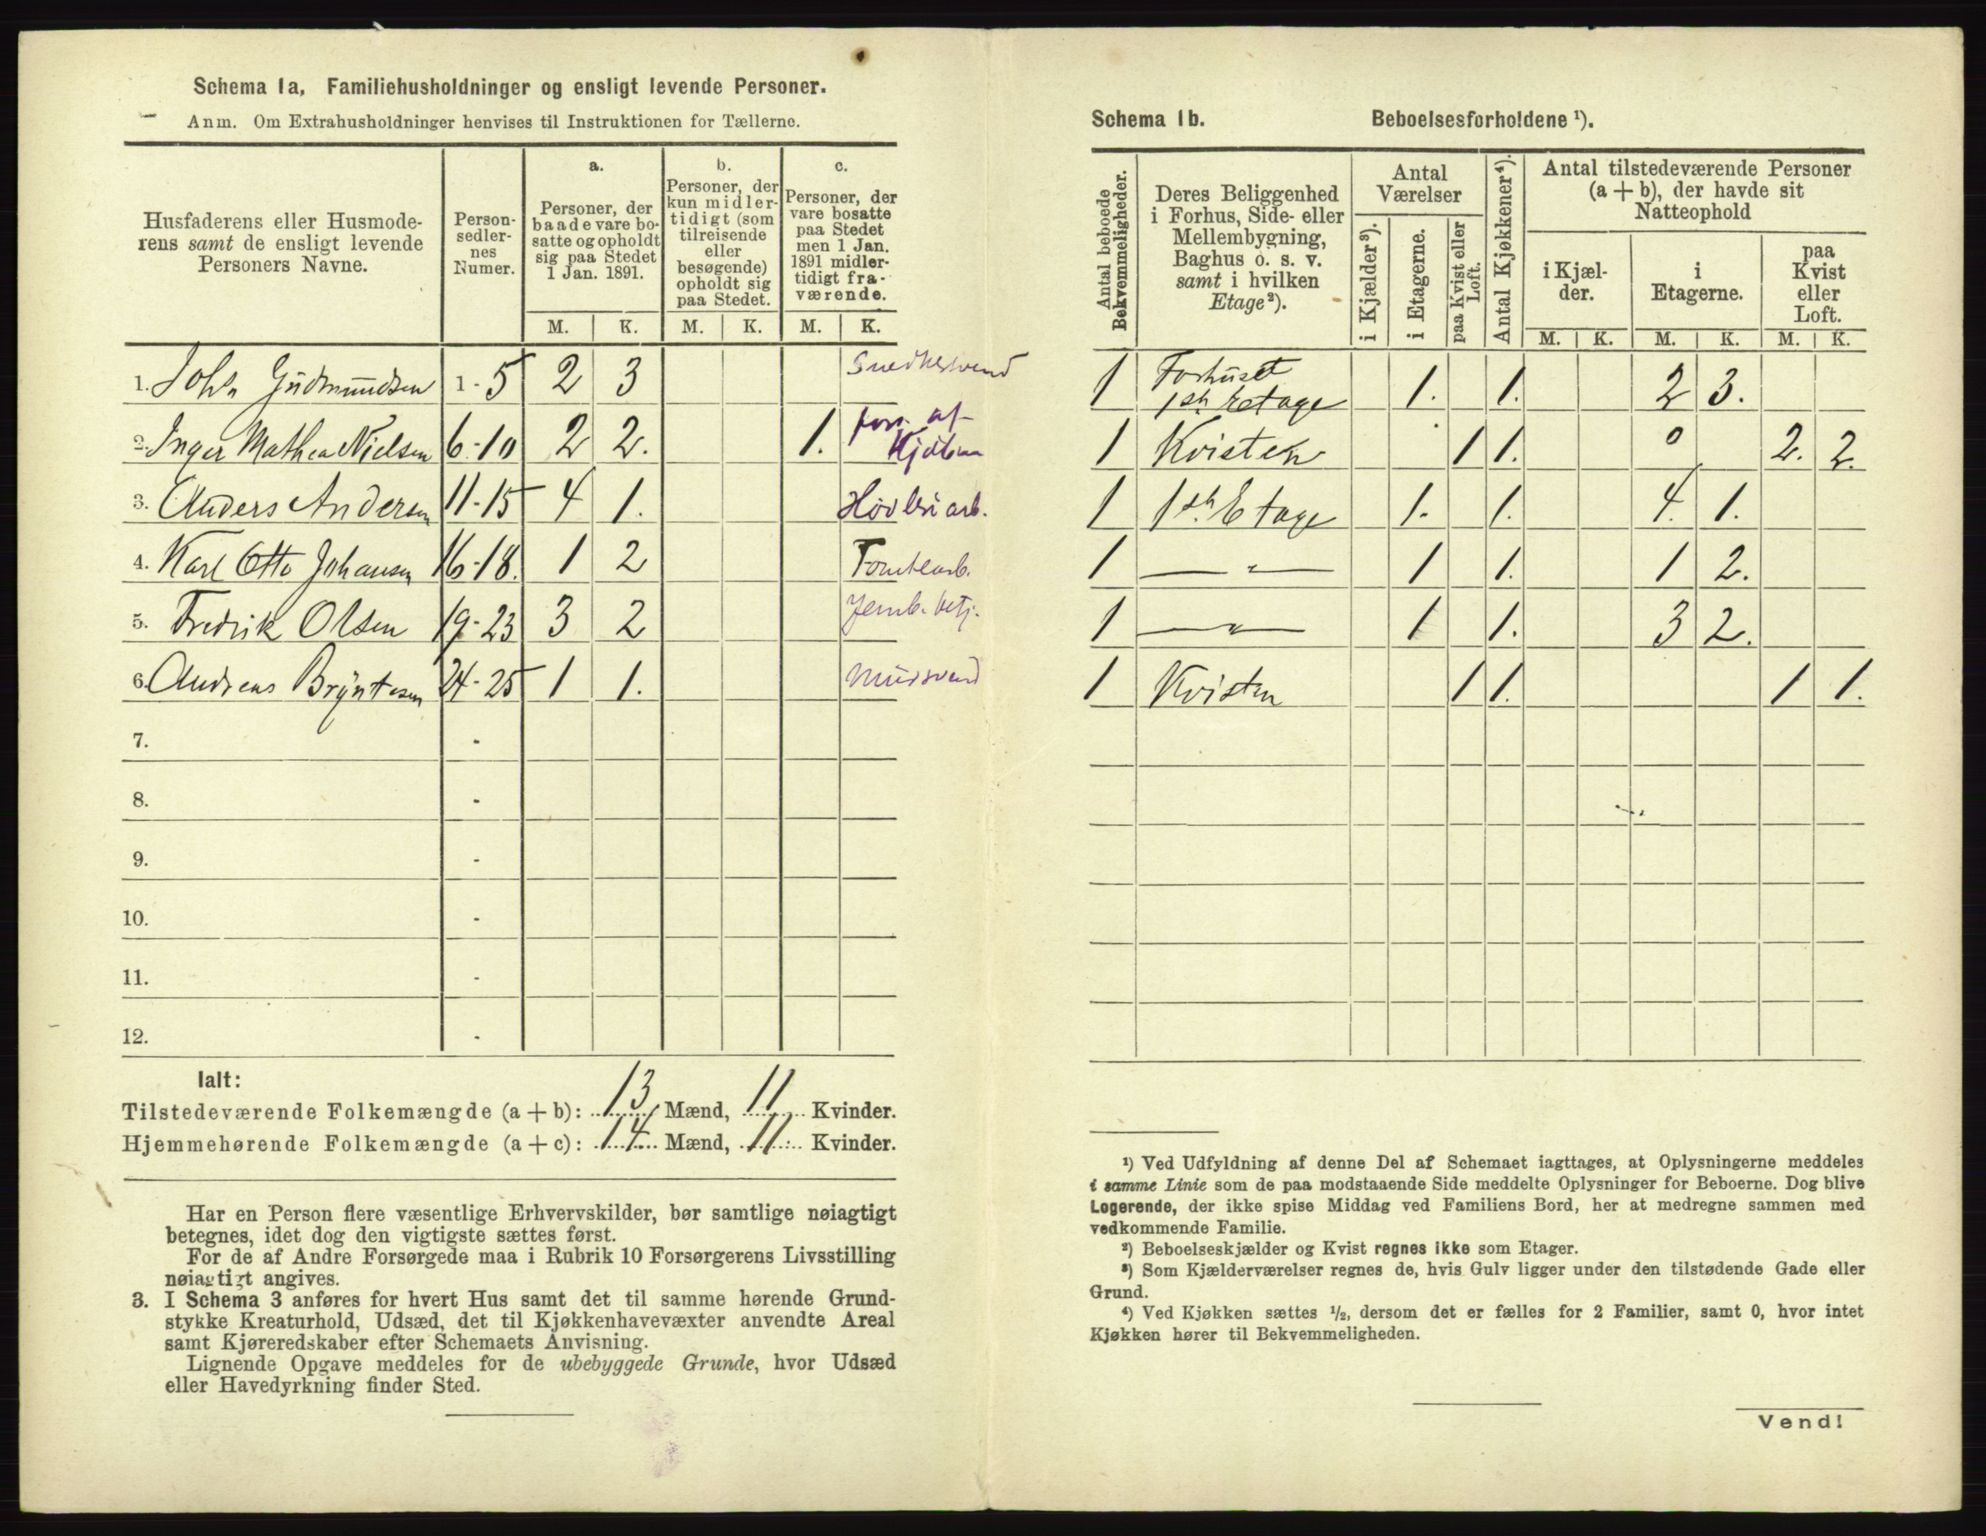 Schema 1a, Familiehusholdninger og ensligt levende Personer.
Anm. Om Extrahusholdninger henvises til Instruktionen for Tællerne.
Husfaderens eller Husmode-
rens samt de ensligt levende
Personers Navne.
Person-
sedler-
nes
Numer.
a.
Personer, der
baade vare bo-
satte og opholdt
sig paa Stedet
1 Jan. 1891.
b.
Personer, der
kun midler-
tidigt (som
tilreisende
eller
besøgende)
opholdt sig
paa Stedet.
c.
Personer, der
vare bosatte
paa Stedet
men 1 Jan.
1891 midler-
tidigt fra-
værende.
M. K. M. K. M. K.
1. John Gudmundsen 1-5 2 3 Snedkersvend
2. Inger Mathea Nielsen 6-10 2 2. 1. fors. af
3. Anders Andersen 11-15 4 1. Høvleriarb.
4. Karl Otto Johansen 16-18. 1 2 Tomtearb.
5. Fredrik Olsen 19-23 3 2 Jernb. betj.
6. Andreas Bryntesen 24-25 1 1. Mursvend
7. -
8. -
9. -
10. -
11. -
12. -
Ialt:
Tilstedeværende Folkemængde (a + b): 13 Mænd, 11 Kvinder.
Hjemmehørende Folkemængde (a + c): 14 Mænd, 11 Kvinder.
Har en Person flere væsentlige Erhvervskilder, bør samtlige nøiagtigt
betegnes, idet dog den vigtigste sættes først.
For de af Andre Forsørgede maa i Rubrik 10 Forsørgerens Livsstilling
nøiagtigt angives.
3. I Schema 3 anføres for hvert Hus samt det til samme hørende Grund-
stykke Kreaturhold, Udsæd, det til Kjøkkenhavevæxter anvendte Areal
samt Kjøreredskaber efter Schemaets Anvisning.
Lignende Opgave meddeles for de ubebyggede Grunde, hvor Udsæd
eller Havedyrkning finder Sted.
Schema 1b. Beboelsesforholdene ¹).
Antal beboede
Bekvemmeligheder.
Deres Beliggenhed
i Forhus, Side- eller
Mellembygning,
Baghus o. s. v.
samt i hvilken
Etage²).
Antal
Værelser
i Kjælder³).
i Etagerne.
paa Kvist eller
Loft.
Antal Kjøkkener⁴).
Antal tilstedeværende Personer
(a + b), der havde sit
Natteophold
i Kjæl-
der.
i
Etagerne.
paa
Kvist
eller
Loft.
M. K. M. K. M. K.
1 Forhuset
1ste Etage 1. 1. 2 3.
1 Kvisten 1 1. 0 2. 2.
1 1ste Etage 1. 1. 4. 1.
1 — " — 1 1. 1 2.
1 — " — 1 1. 3 2.
1 Kvisten 1 1. 1 1.
¹) Ved Udfyldning af denne Del af Schemaet iagttages, at Oplysningerne meddeles
i samme Linie som de paa modstaaende Side meddelte Oplysninger for Beboerne. Dog blive
Logerende, der ikke spise Middag ved Familiens Bord, her at medregne sammen med
vedkommende Familie.
²) Beboelseskjælder og Kvist regnes ikke som Etager.
³) Som Kjælderværelser regnes de, hvis Gulv ligger under den tilstødende Gade eller
Grund.
⁴) Ved Kjøkken sættes ½, dersom det er fælles for 2 Familier, samt 0, hvor intet
Kjøkken hører til Bekvemmeligheden.
Vend!